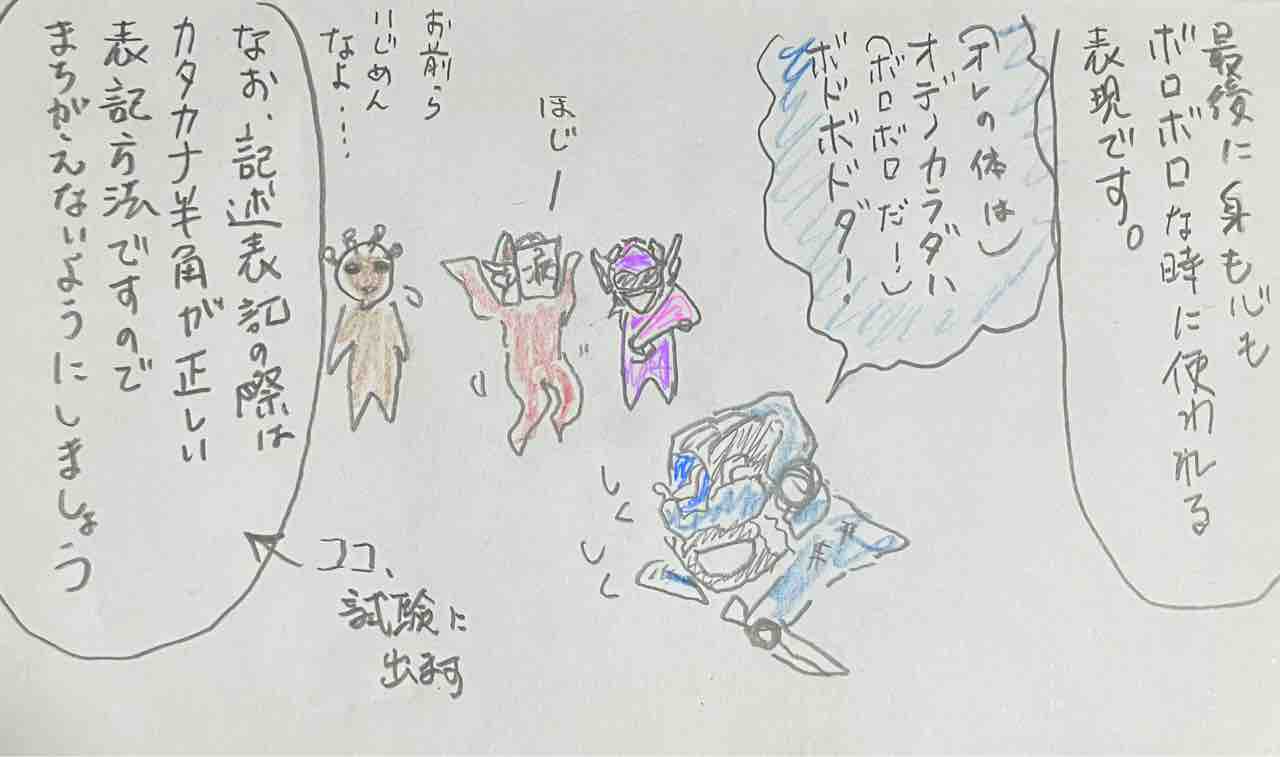 最後に身も心も
ボロボロな時に使われる
表現です。
(オレの体は)
オデノカラダハ
(ボロボロだ!)
ボドボドダ!
ほじー
お前ら
いじめん
なよ....
なお、記述表記の際は
カタカナ半角が正しい
表記方法ですので
まちがえないようにしましょう
病
しく
しく
ココ、
試験に
出ます